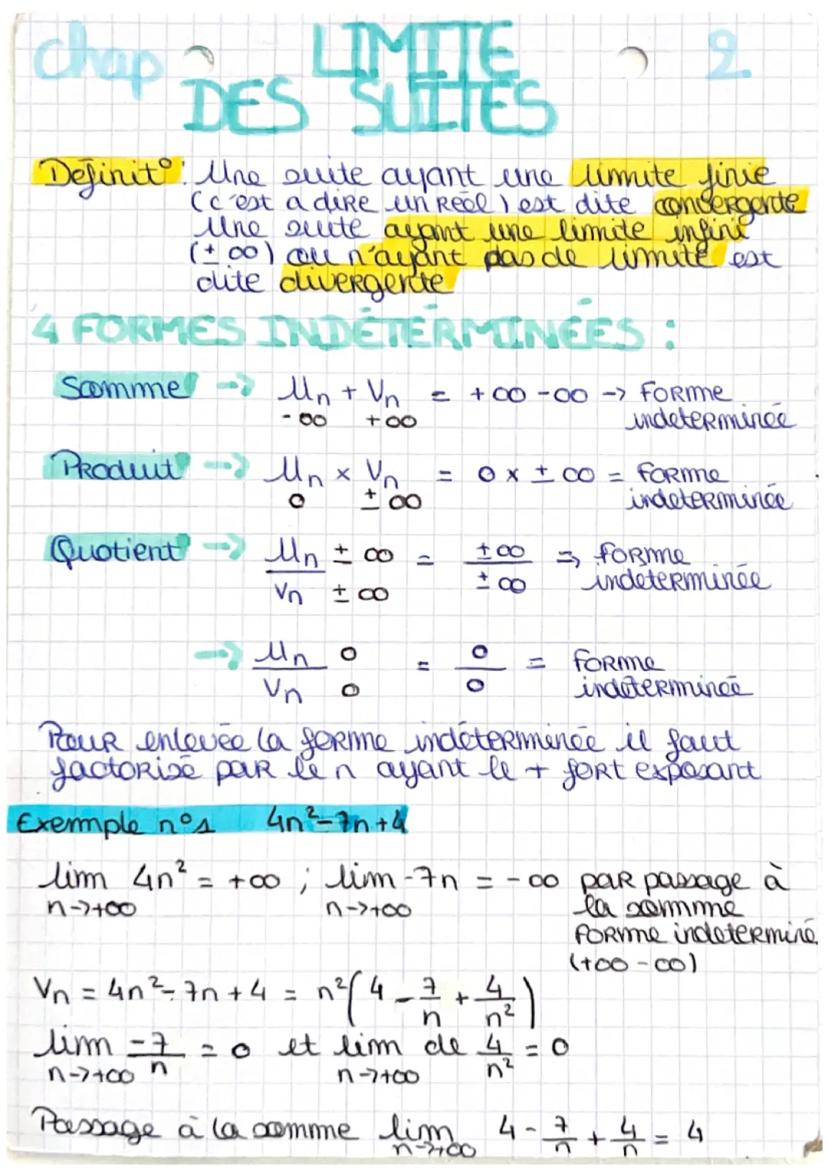 Chap 2
LIMITE
DES SUITES
Définit°: Une suite ayant une limite finie
(c'est a dire un Réel) est dite convergente
Une suite ayant une limite infini
(± ∞) ou n'ayant pas de limite est
dite divergente
4 FORMES INDÉTERMINÉES :
Somme → Un + Vn = +∞ -∞ → forme
-∞ +∞ indeterminée
Produit → Un × Vn = 0 × ± ∞ = forme
0 ± ∞ indeterminée
Quotient → Un ± ∞ = ±∞ ⇒ forme
Vn ± ∞ ± ∞ indeterminée
→ Un 0 = 0 = forme
Vn 0 0 indéterminée
Pour enlevée la forme indéterminée il faut
factorisé par le n ayant le + fort exposant
Exemple n°1 4n²-7n+4
lim 4n² = +∞ ; lim -7n = -∞ par passage à
n→+∞ n→+∞ la somme
forme indeterminé
(+∞ -∞)
Vn = 4n²-7n+4 = n²(4 - 7/n + 4/n²)
lim -7/n = 0 et lim de 4/n² = 0
n→+∞ n→+∞
Passage à la somme lim 4 - 7/n + 4/n = 4
n→+∞